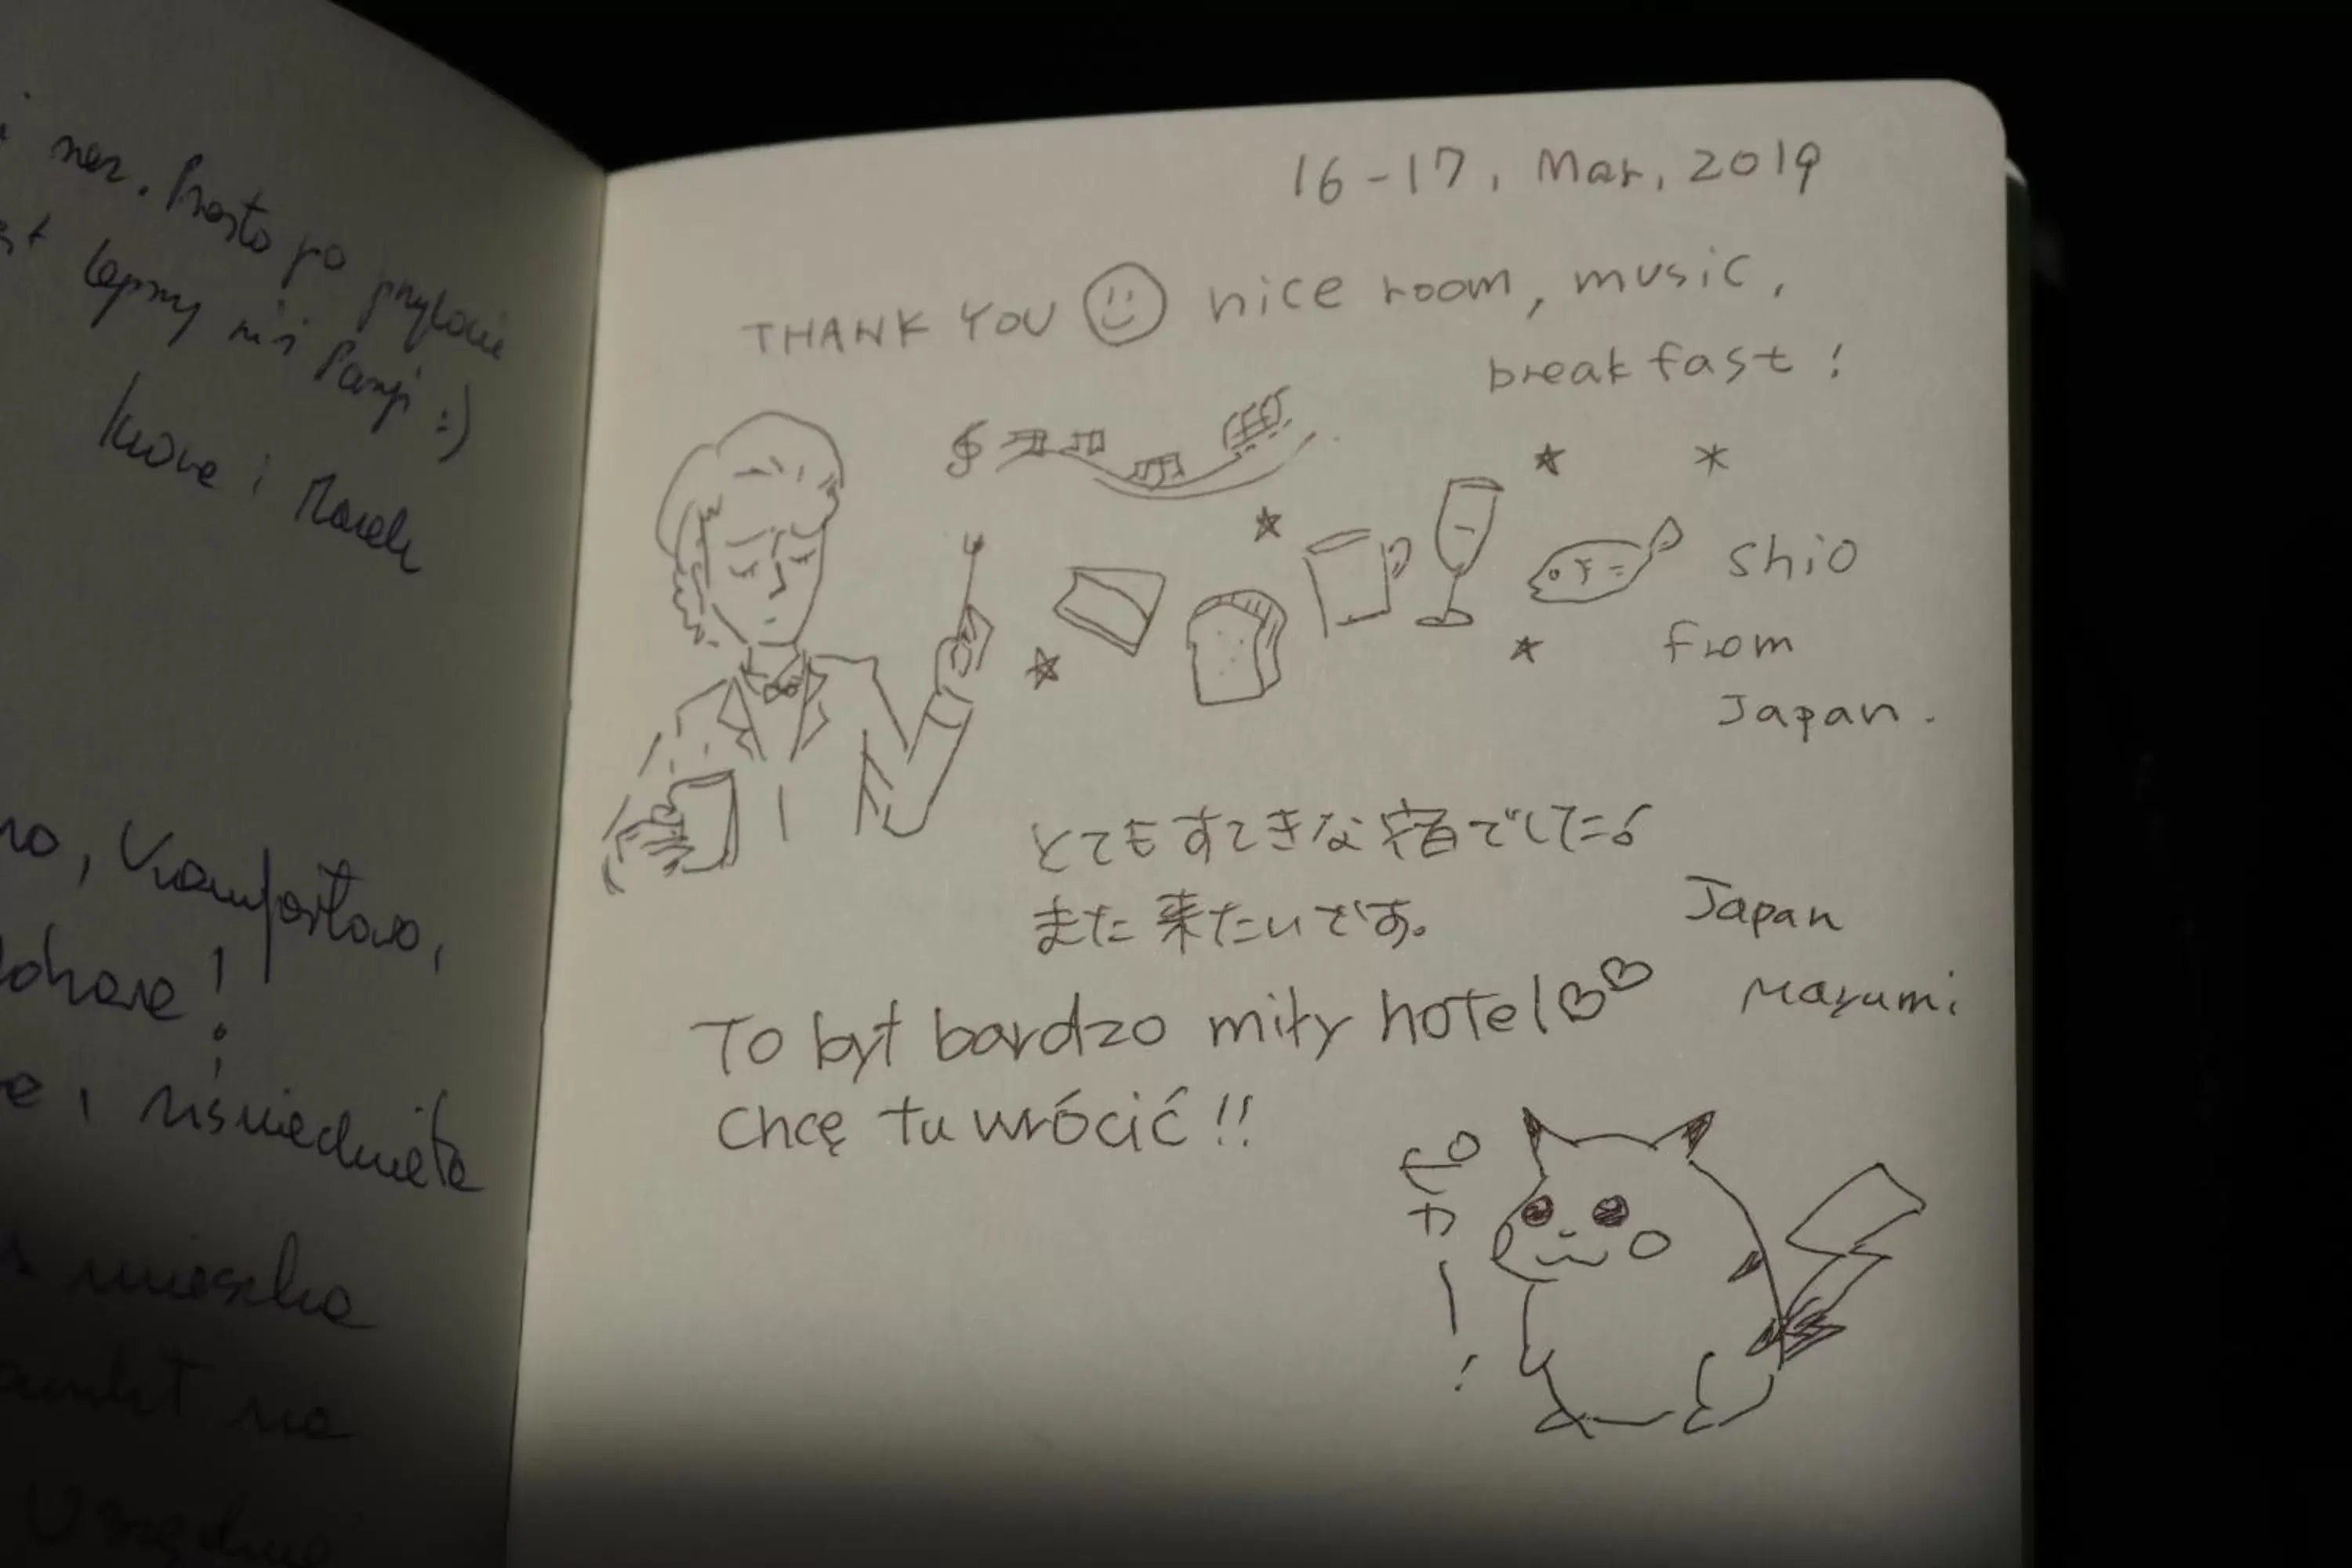 nez. Prosto po
lepszy niż Paryż :)
i Marek
no, komfortowo,
!
i uśmiechnięta
mieszka
na
16-17, Mar, 2019
THANK YOU nice room, music,
breakfast!
shio
from
Japan.
とてもすてきな宿でした♪
また来たいです。
Japan
Mayumi
To był bardzo miły hotel♡♡
Chcę tu wrócić!!
ピカー!